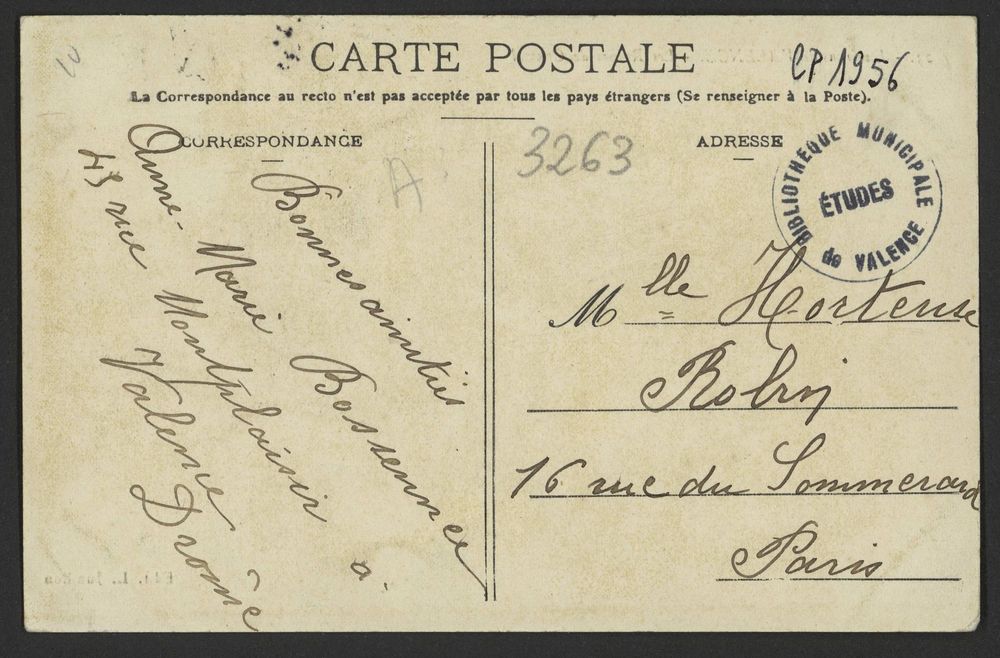 CARTE POSTALE
CP 1956
La Correspondance au recto n'est pas acceptée par tous les pays étrangers (Se renseigner à la Poste).
CORRESPONDANCE
A
3263
ADRESSE
BIBLIOTHEQUE MUNICIPALE
ÉTUDES
de VALENCE
Bonnes amitiés
Anne-Marie
à
43 rue Montplaisir
Valence
Drôme
Mlle Hortense
Robin
16 rue du Sommerard
Paris